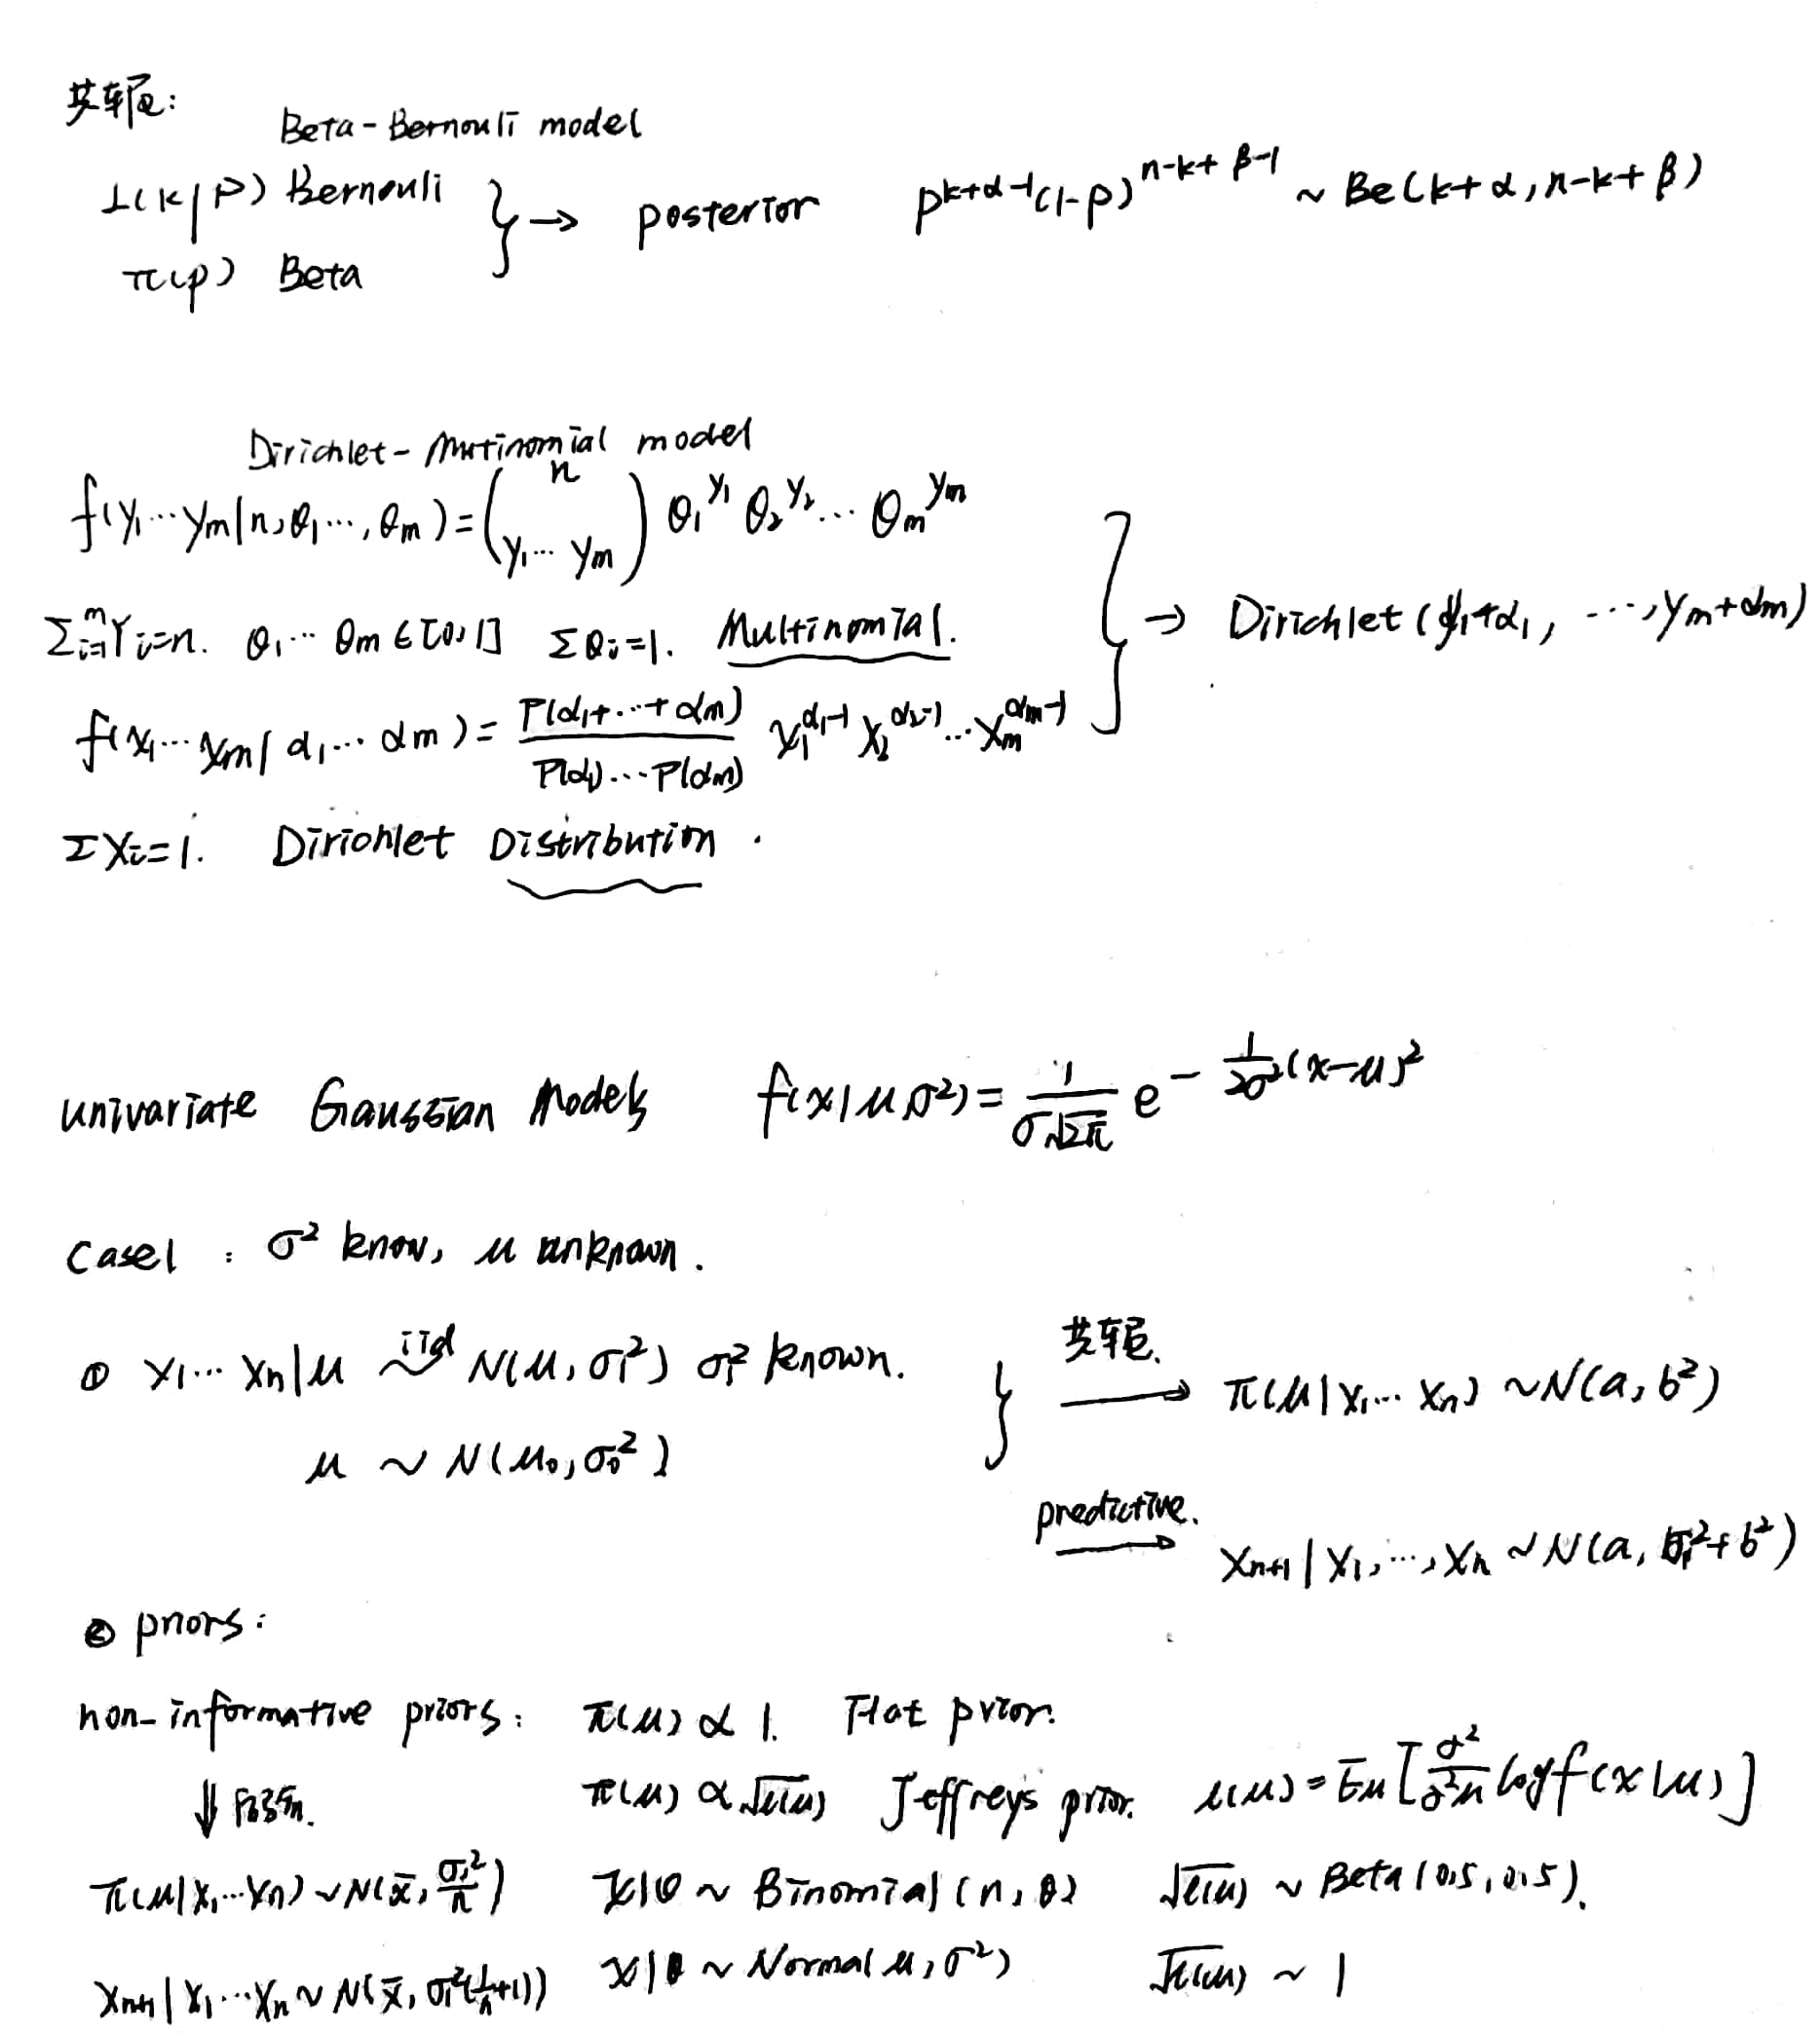 共轭:
Beta-Bernouli model
L(k|p) Bernouli } → posterior p^{k+α-1}(1-p)^{n-k+β-1} ~ Be(k+α, n-k+β)
π(p) Beta
Dirichlet-Mutinomial model
f(y₁…yₘ|n,θ₁…,θₘ)=(n / y₁…yₘ) θ₁^{y₁} θ₂^{y₂}…θₘ^{yₘ}
Σᵢ₌₁^m Yᵢ=n. θ₁…θₘ∈[0,1] Σθᵢ=1. Multinomial. } → Dirichlet(y₁+α₁, …,yₘ+αₘ)
f(x₁…xₘ|α₁…αₘ)= Γ(α₁+…+αₘ) / Γ(α₁)…Γ(αₘ) x₁^{α₁-1} x₂^{α₂-1}…xₘ^{αₘ-1}
ΣXᵢ=1. Dirichlet Distribution.
univariate Gaussian Models f(x|μ,σ²)= 1/(σ√2π) e^{-1/2σ² (x-μ)²}
case1 : σ² know, μ unknown.
① x₁…xₙ|μ ~iid N(μ,σ₁²) σ₁² known. } 共轭. → π(μ|x₁…xₙ) ~N(a,b²)
μ ~ N(μ₀,σ₀²)
predictive. → xₙ₊₁|x₁,…,xₙ ~N(a, σ₁²+b²)
② priors:
non-informative priors: π(μ) ∝ 1. Flat prior.
⇓ π(μ) ∝ √I(μ) Jeffreys prior. I(μ)=Eμ[∂²/∂²μ log f(x|μ)]
π(μ|x₁…xₙ)~N(x̄, σ₁²/n) X|θ ~ Binomial(n,θ) √I(μ) ~ Beta(0.5,0.5).
xₙ₊₁|x₁…xₙ ~ N(x̄, σ₁²(1/n+1)) x|θ ~ Normal(μ,σ²) √I(μ) ~ 1